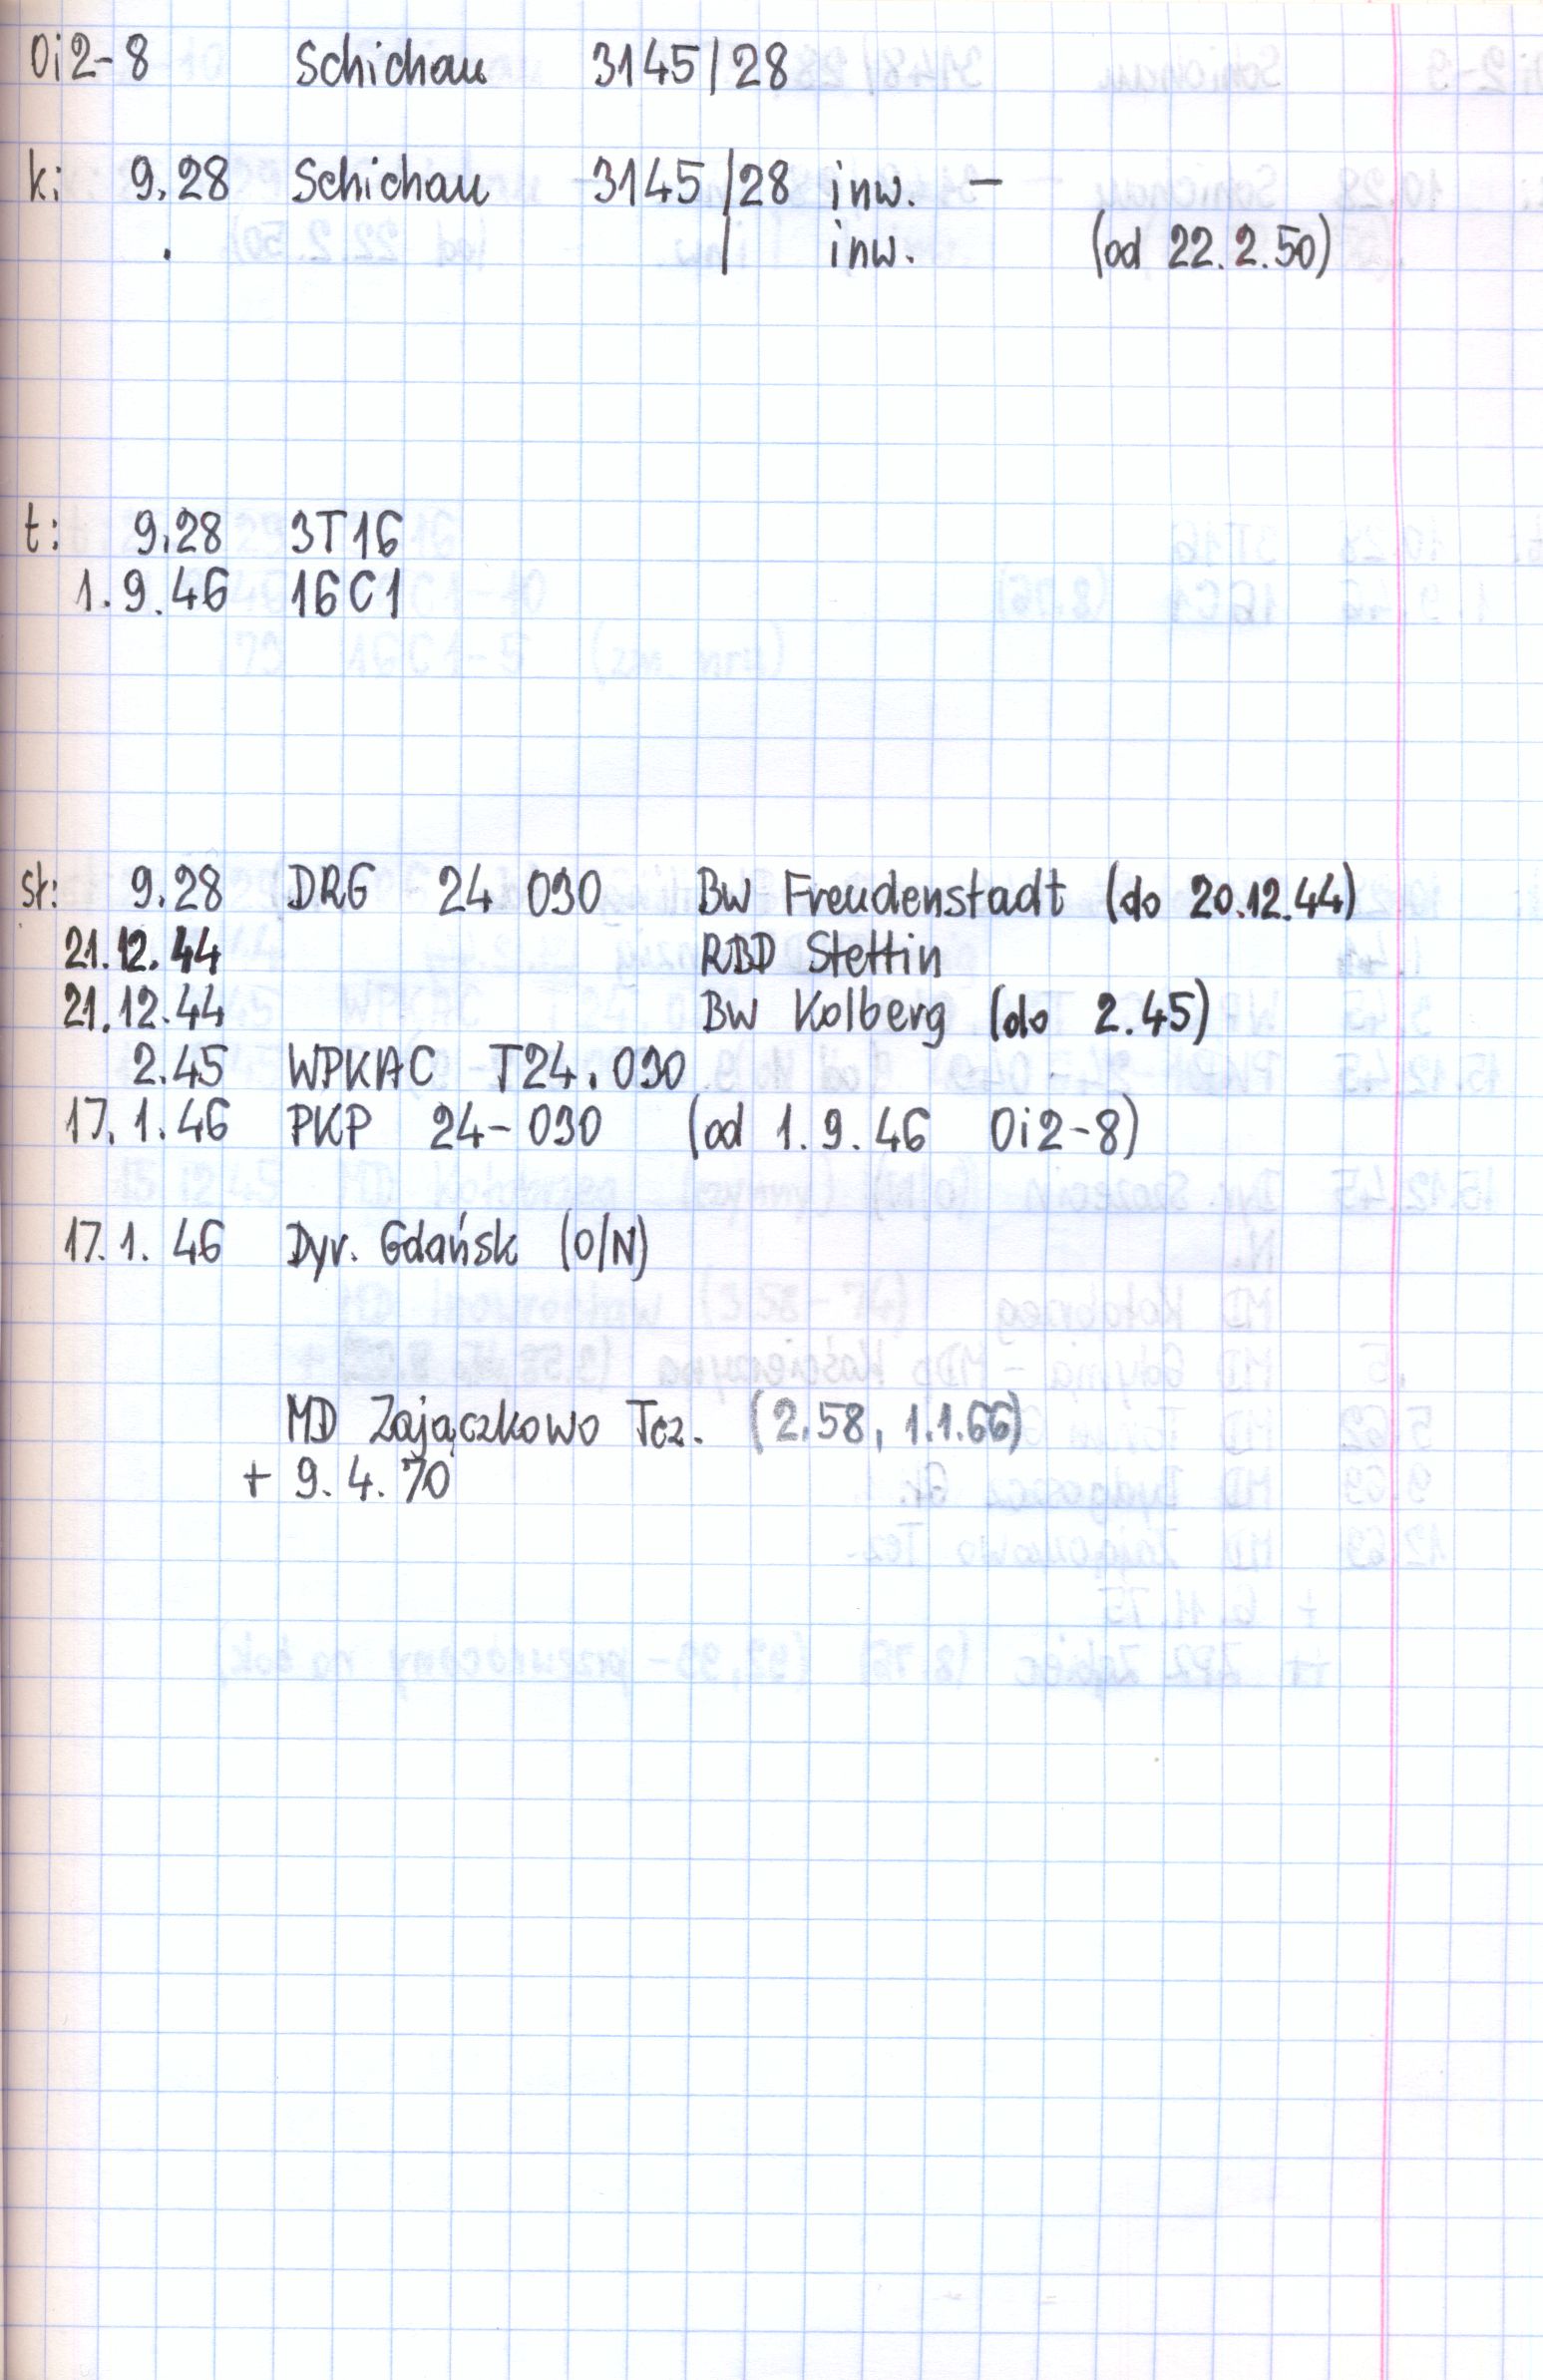 Oi2-8 Schichau 3145/28
k: 9.28 Schichau 3145/28 inw. –
. / inw. (od 22.2.50)
t: 9.28 3T16
1.9.46 16C1
st: 9.28 DRG 24 030 Bw Freudenstadt (do 20.12.44)
21.12.44 RBD Stettin
21.12.44 Bw Kolberg (do 2.45)
2.45 WPKAC T24.030
17.1.46 PKP 24-030 (od 1.9.46 Oi2-8)
17.1.46 Dyr. Gdańsk (O/N)
MD Zajączkowo Tcz. (2.58, 1.1.66)
+ 9.4.70